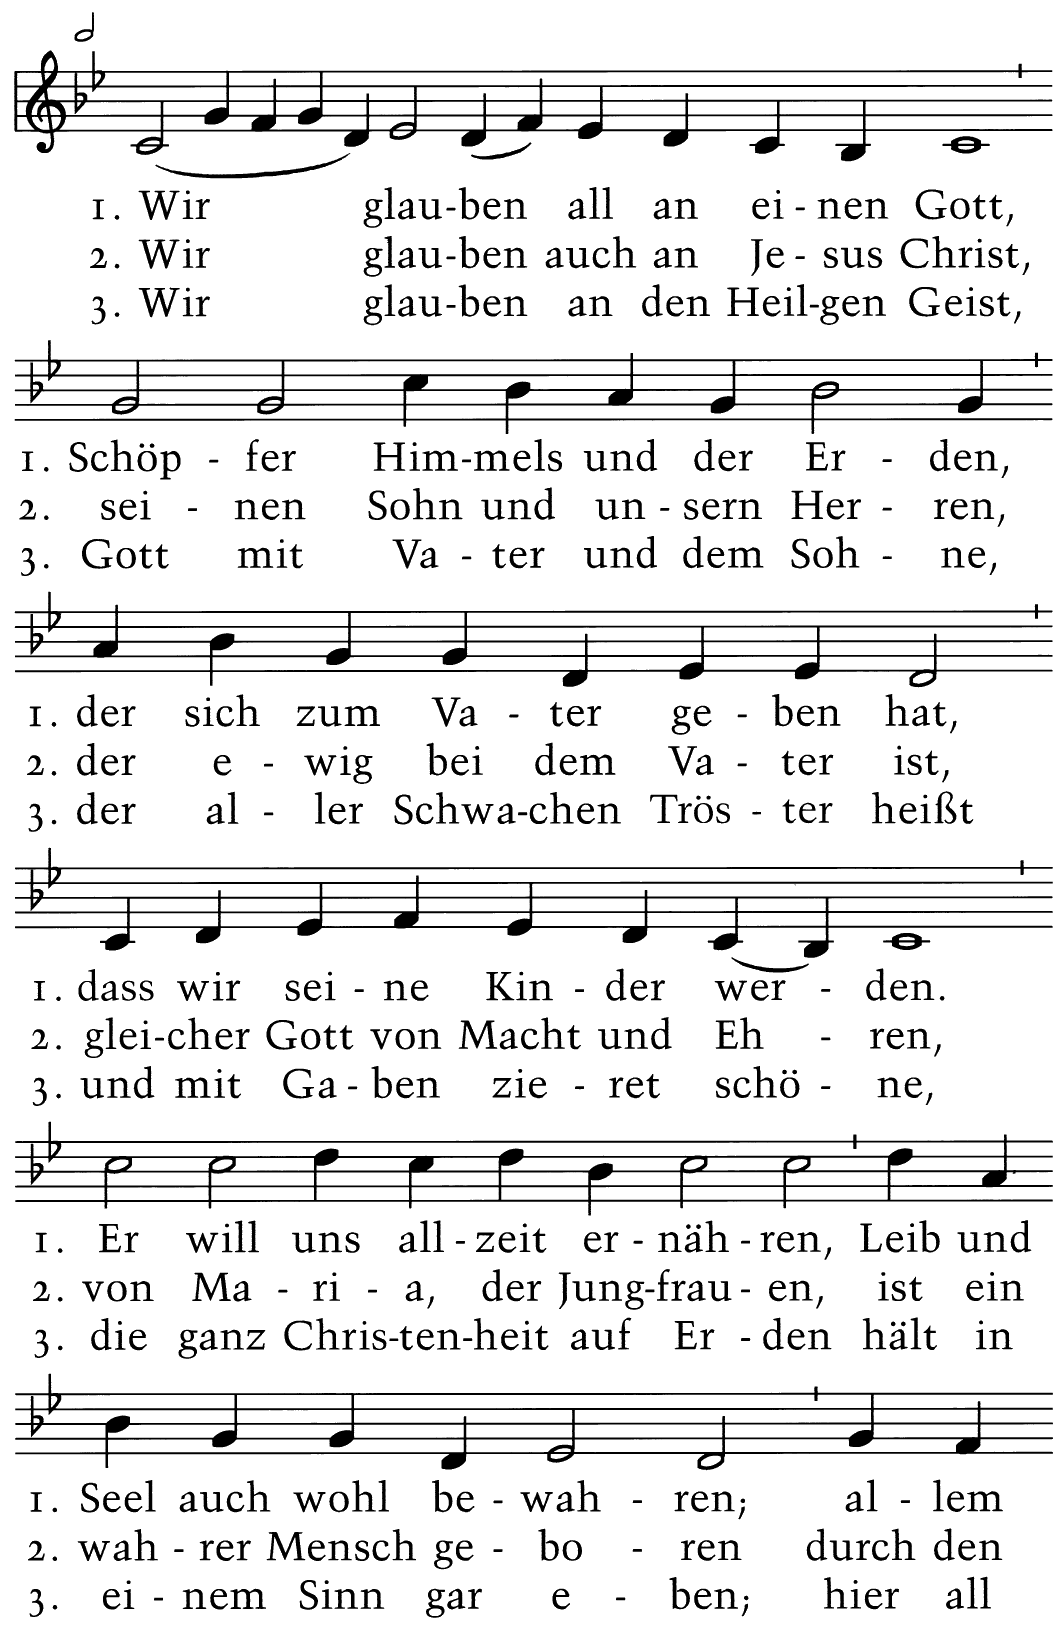 1. Wir glau-ben all an ei - nen Gott,
2. Wir glau-ben auch an Je - sus Christ,
3. Wir glau-ben an den Heil-gen Geist,
1. Schöp - fer Him-mels und der Er - den,
2. sei - nen Sohn und un - sern Her - ren,
3. Gott mit Va - ter und dem Soh - ne,
1. der sich zum Va - ter ge - ben hat,
2. der e - wig bei dem Va - ter ist,
3. der al - ler Schwa-chen Trös - ter heißt
1. dass wir sei - ne Kin - der wer - den.
2. glei-cher Gott von Macht und Eh - ren,
3. und mit Ga - ben zie - ret schö - ne,
1. Er will uns all - zeit er - näh - ren, Leib und
2. von Ma - ri - a, der Jung-frau - en, ist ein
3. die ganz Chris-ten-heit auf Er - den hält in
1. Seel auch wohl be - wah - ren; al - lem
2. wah - rer Mensch ge - bo - ren durch den
3. ei - nem Sinn gar e - ben; hier all